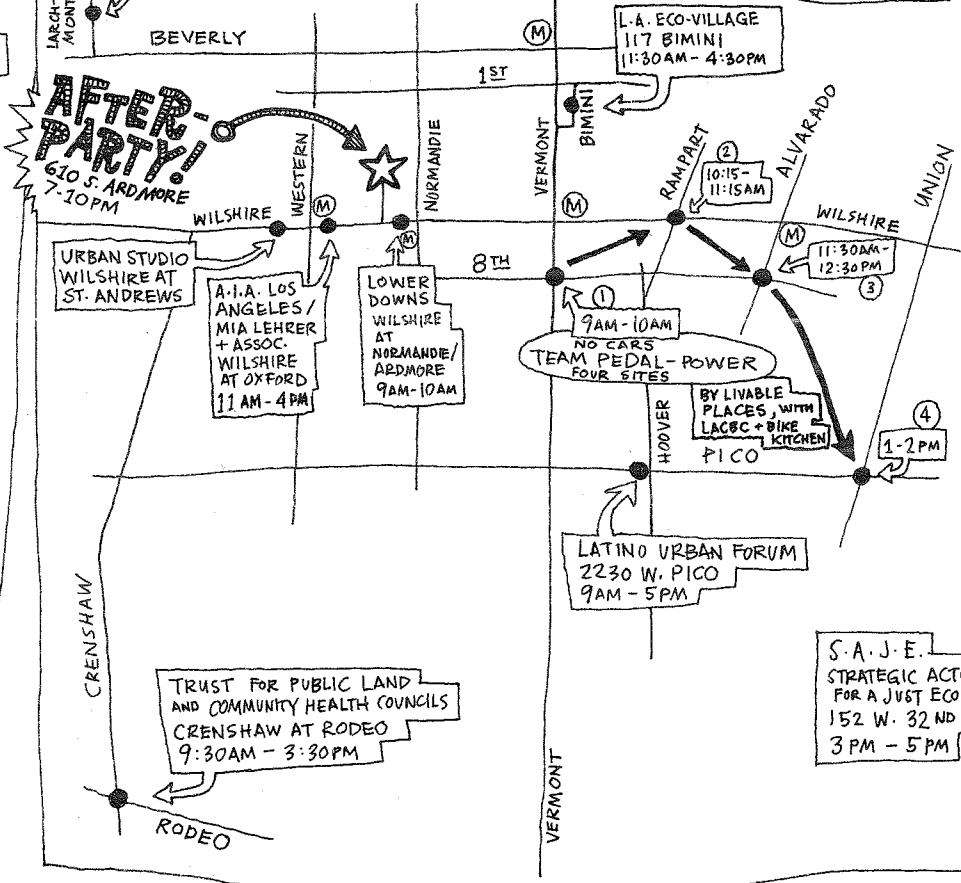 LARCH-
MONT
BEVERLY
M
L.A. ECO-VILLAGE
117 BIMINI
11:30AM - 4:30PM
1ST
AFTER-
PARTY!
610 S. ARDMORE
7-10PM
WESTERN
NORMANDIE
VERMONT
BIMINI
RAMPART
2
10:15-
11:15AM
ALVARADO
UNION
WILSHIRE
M
M
M
M
WILSHIRE
URBAN STUDIO
WILSHIRE AT
ST. ANDREWS
A.I.A. LOS
ANGELES/
MIA LEHRER
+ ASSOC.
WILSHIRE
AT OXFORD
11 AM-4 PM
LOWER
DOWNS
WILSHIRE
AT
NORMANDIE/
ARDMORE
9AM-10AM
8TH
1
9AM-10AM
11:30AM-
12:30PM
3
NO CARS
TEAM PEDAL-POWER
FOUR SITES
BY LIVABLE
PLACES, WITH
LACBC + BIKE
KITCHEN
HOOVER
PICO
4
1-2 PM
LATINO URBAN FORUM
2230 W. PICO
9AM - 5PM
CRENSHAW
TRUST FOR PUBLIC LAND
AND COMMUNITY HEALTH COUNCILS
CRENSHAW AT RODEO
9:30AM - 3:30PM
RODEO
VERMONT
S.A.J.E.
STRATEGIC ACT
FOR A JUST ECO
152 W. 32ND
3 PM - 5 PM